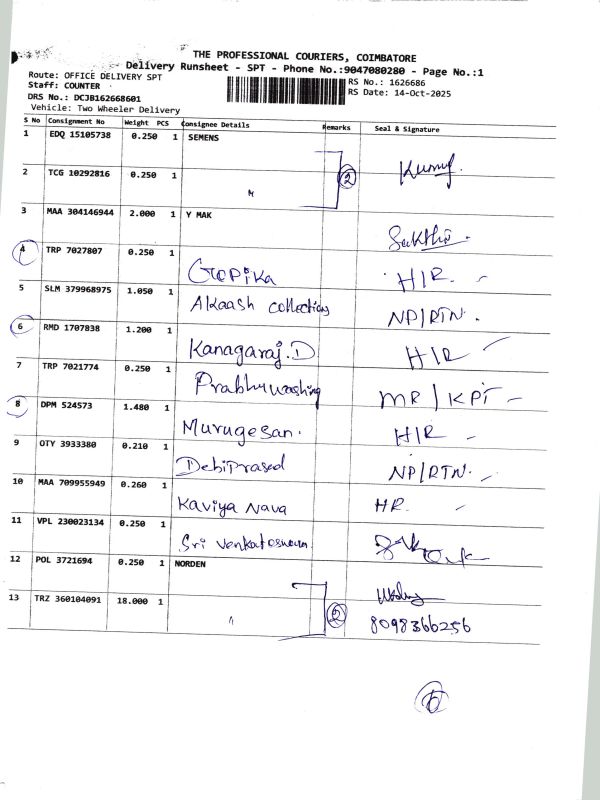 THE PROFESSIONAL COURIERS, COIMBATORE
Delivery Runsheet - SPT - Phone No.:9047080280 - Page No.:1
Route: OFFICE DELIVERY SPT
RS No.: 1626686
Staff: COUNTER
RS Date: 14-Oct-2025
DRS No.: DCJB162668601
Vehicle: Two Wheeler Delivery
S No Consignment No Weight PCS Consignee Details Remarks Seal & Signature
1 EDQ 15105738 0.250 1 SEMENS
2 TCG 10292816 0.250 1 " 2
3 MAA 304146944 2.000 1 Y MAK Sakthi
4 TRP 7027807 0.250 1 Gopika H/R.
5 SLM 379968975 1.050 1 Akaash collections NP/RTN.
6 RMD 1707838 1.200 1 Kanagaraj.D H/R
7 TRP 7021774 0.250 1 Prabhuwashing MR/KPT
8 DPM 524573 1.480 1 Murugesan. H/R
9 OTY 3933380 0.210 1 Debiprased NP/RTN.
10 MAA 709955949 0.260 1 Kaviya Nava HR.
11 VPL 230023134 0.250 1 Sri
12 POL 3721694 0.250 1 NORDEN
13 TRZ 360104091 18.000 1 " 2 8098366256